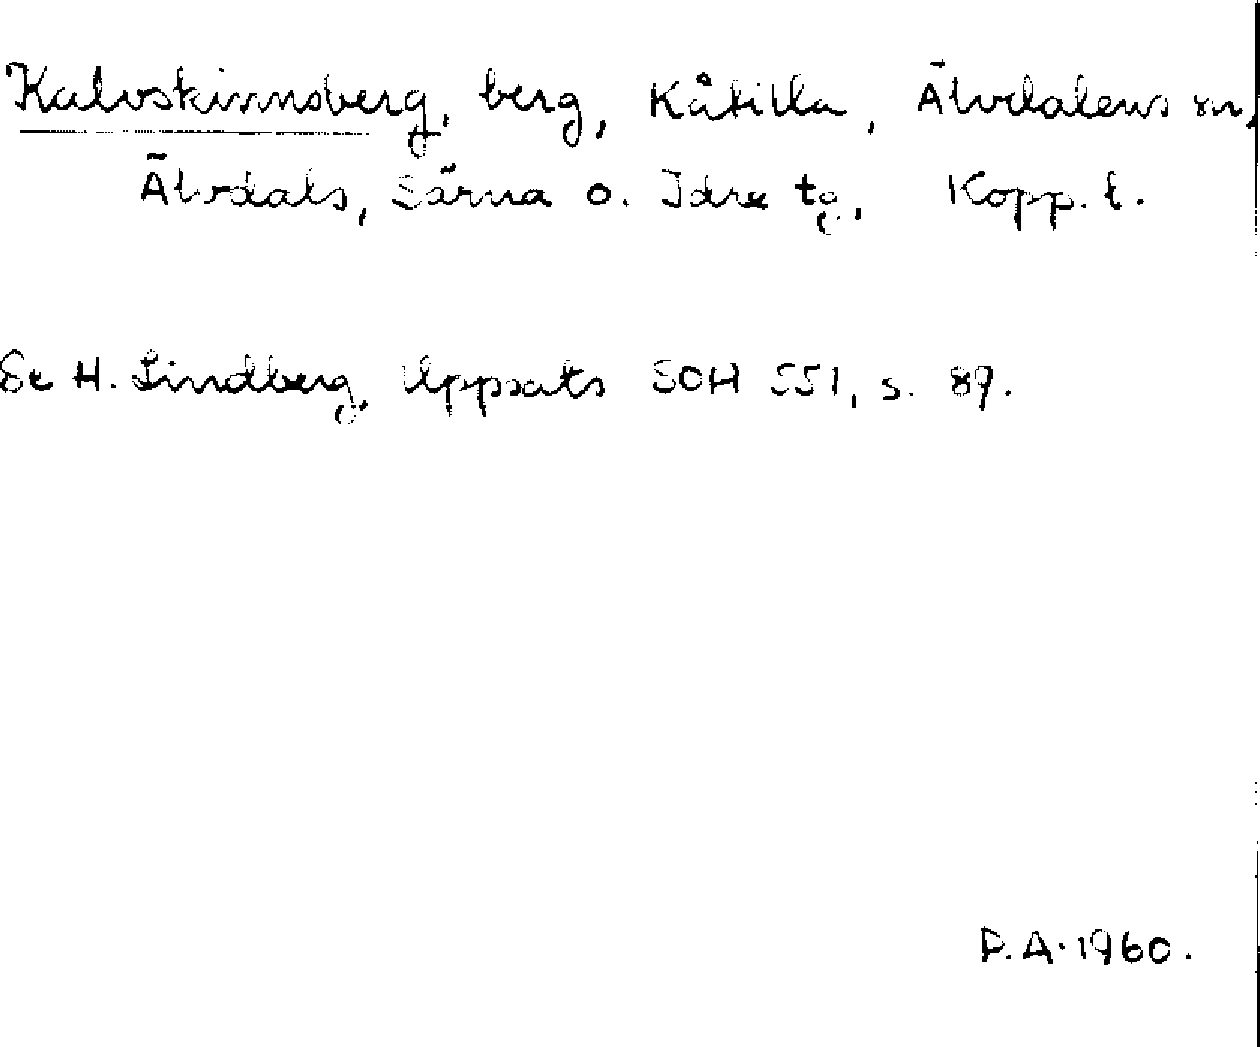 Kalvskinnsberg, berg, Kåtilla, Älvdalens sn,
Älvdals, Särna o. Idre tg, Kopp. l.
Se H. Lindberg, Uppsats SOH 551, s. 89.
P.A. 1960.